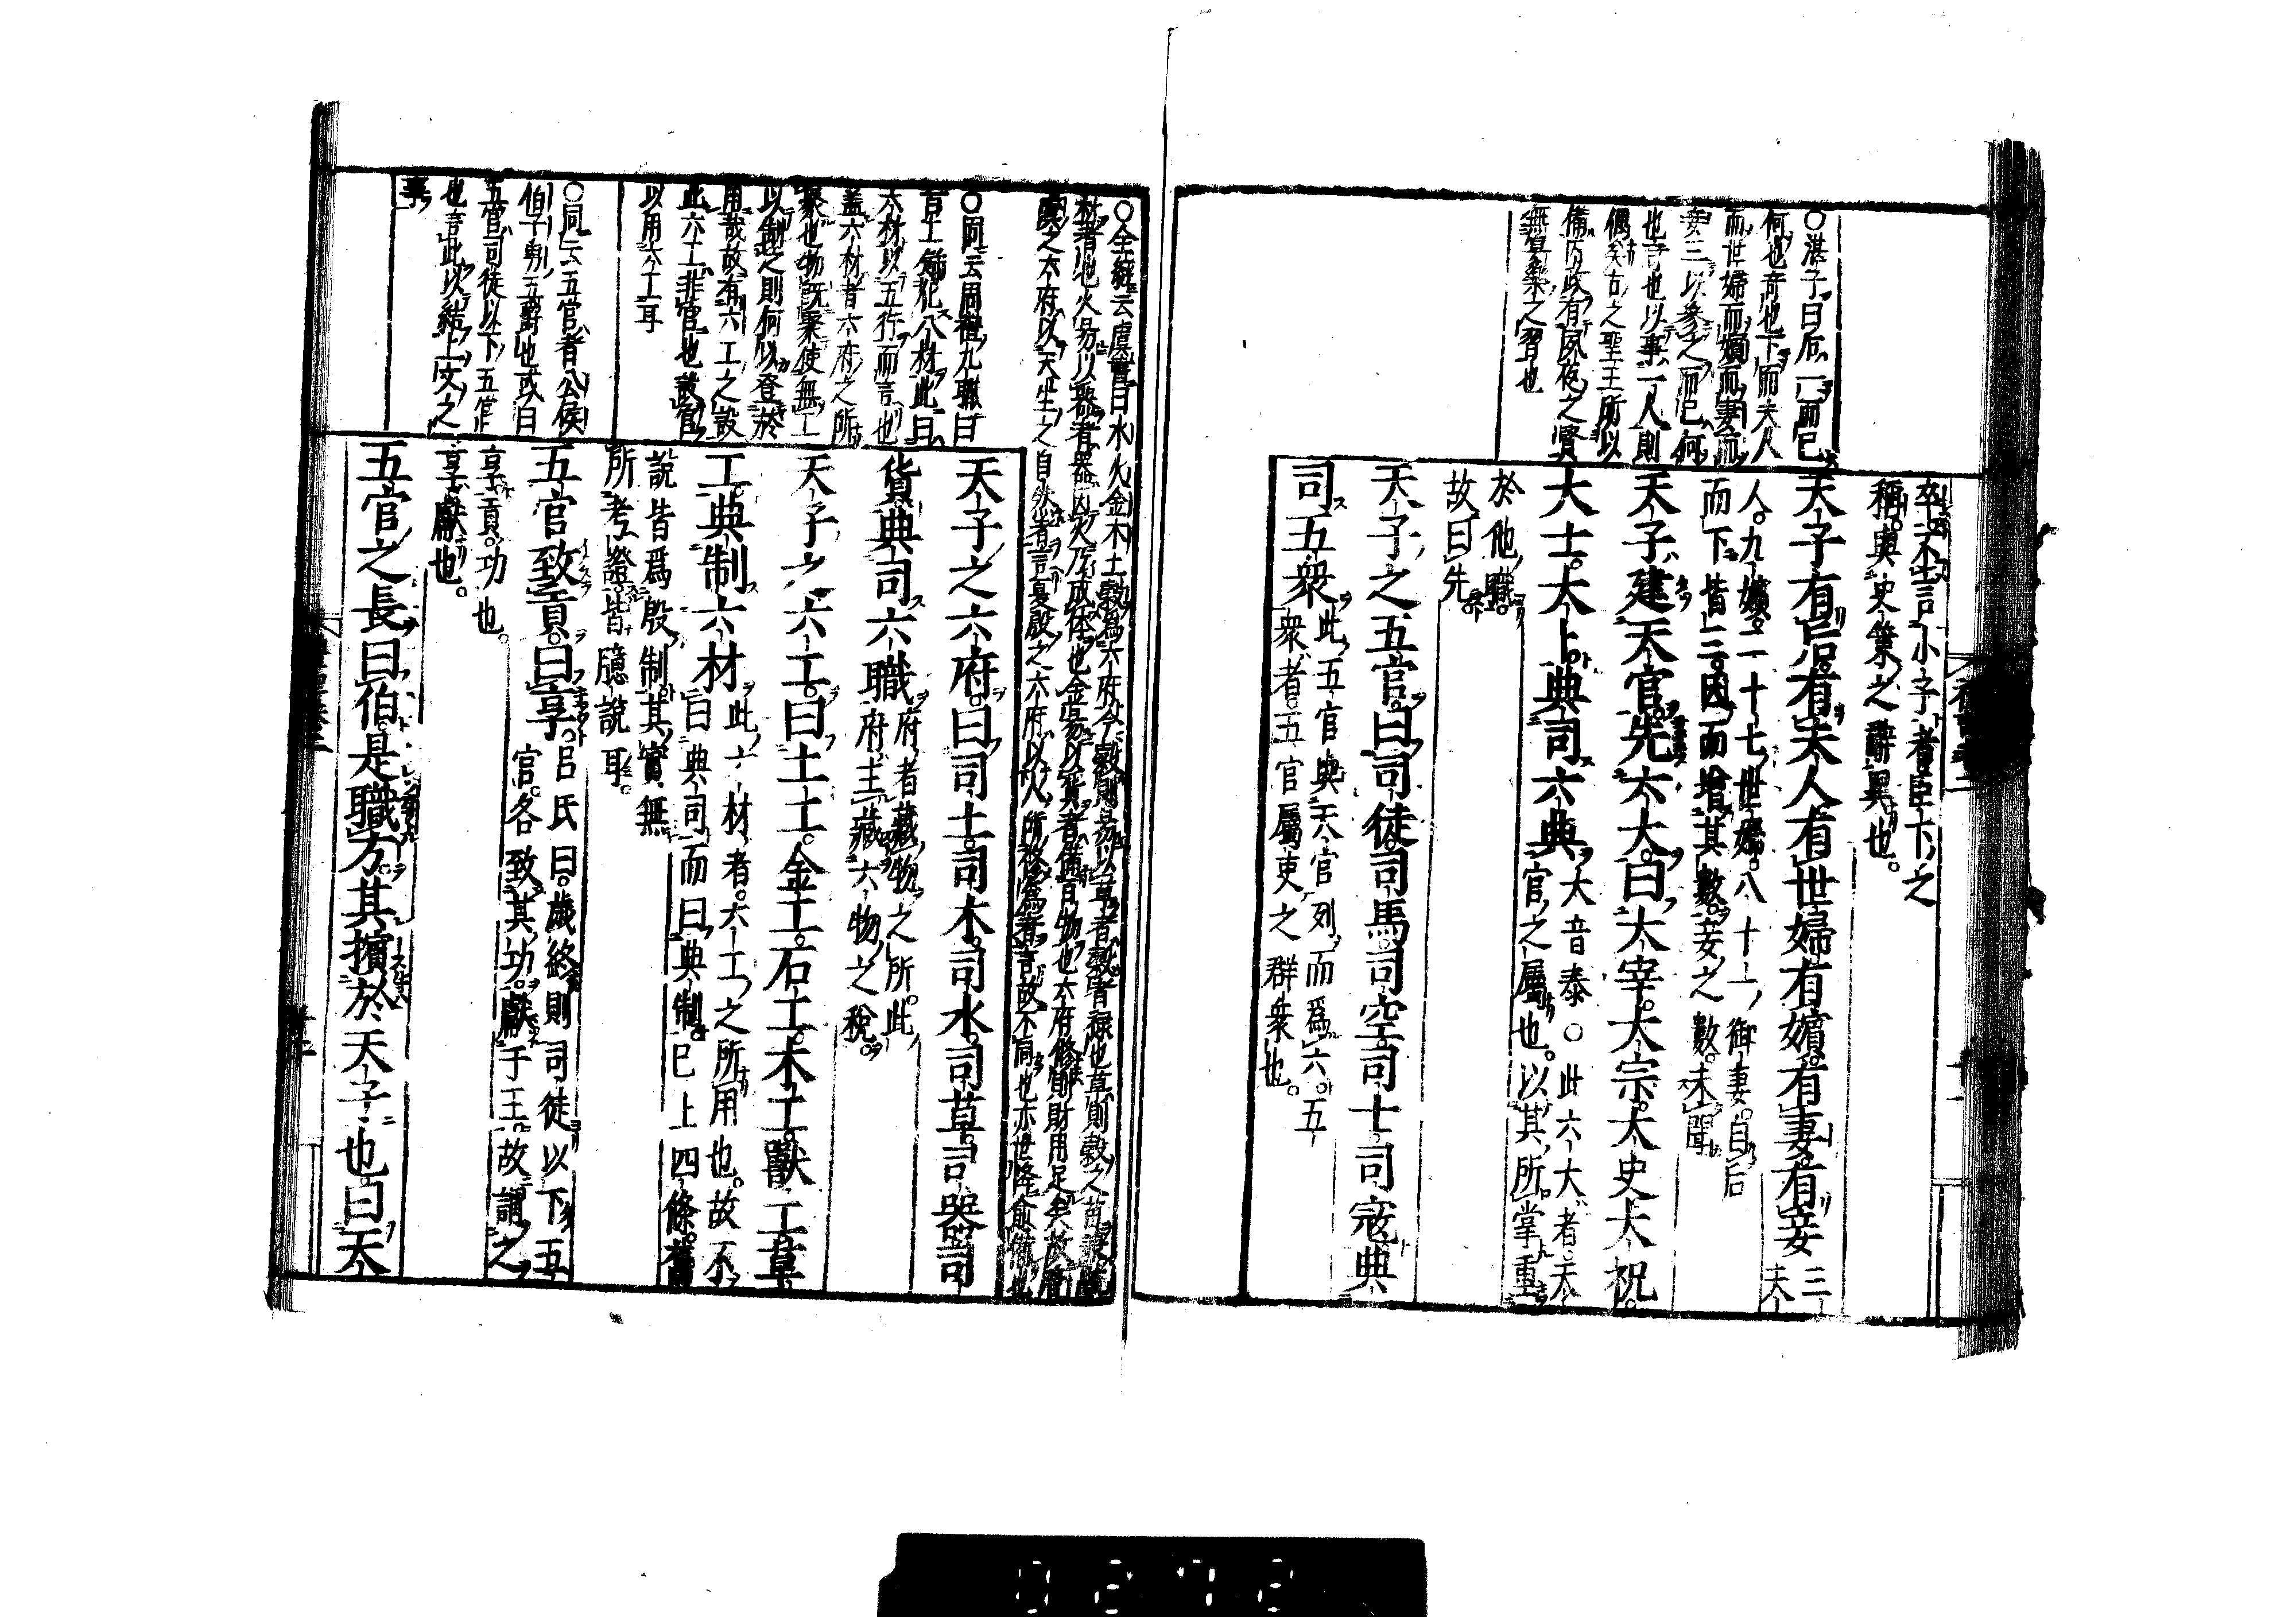 ○湛子曰后一而已
何也奇也下而夫人
而世婦而嬪而妻而
妾三以參之而已何
也奇也以事一人則
偶矣古之聖王所以
備内政有夙夜之賢
無算築之習也
卒不言小子者臣下之
稱與史策之辭異也
天子有后有夫人有世婦有嬪有妻有妾三夫
人九嬪二十七世婦八十一御妻自后
而下皆三因而增其數妾之數未聞
天子建天官先六大曰大宰大宗大史大祝
大士大卜典司六典大音泰○此六大者天
官之屬也以其所掌重
於他職
故曰先
天子之五官曰司徒司馬司空司士司寇典
司五衆此五官與天官列而爲六五
衆者五官屬吏之群衆也
○全經云虞書曰水火金木土穀爲六府今穀則易以草者穀者祿也草則穀之苗
材者地火易以器者器因火乃成体也金易以貨者備百物也六府修則財用足矣故
虞之六府以天生之自然者言夏殷之六府以人所修爲者言故不同也亦世降愈備也
○同云周禮九職曰
百工飭化八材此曰
六材以五行而言也
蓋六材者六府之所
聚也物既聚使無工
以制之則何以登於
用哉故有六工之設
此六工非官也設官
以用六工耳
○同云五官者公侯
伯子男五爵也或曰
五官司徒以下五官
也言此以結上文之
事
天子之六府曰司土司木司水司草司器司
貨典司六職府者藏物之所此
府主藏六物之稅
天子之六工曰土工金工石工木工獸工草
工典制六材此六材者六工之所用也故不
曰典司而曰典制已上四條舊
說皆爲殷制其實無
所考證皆臆說耳
五官致貢曰享呂氏曰歲終則司徒以下五
官各致其功獻于王故謂之
享貢功也
享獻也
五官之長曰伯是職方其擯於天子也曰天
0272